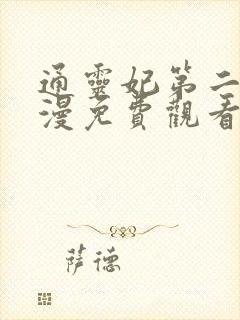 通靈妃第二
漫免費觀看
萨德